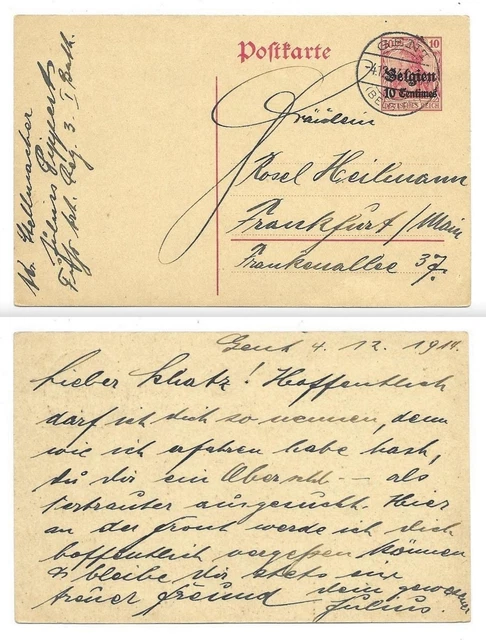 Postkarte
GENT
4.12.14
(BELGIEN)
10 10
Belgien
10 Centimes
DEUTSCHES REICH
Fräulein
Rosel Heilmann
Frankfurt/Main
Frankenallee 37.
Julius
Reg. 3. I Batl.
Gent 4. 12. 1914.
Lieber Schatz! Hoffentlich
darf ich dich so nennen, denn
wie ich erfahren habe hast,
du dir ein als
Vertrauter ausgesucht. Hier
an der Front werde ich dich
hoffentlich vergessen können
& bleibe dir stets ein
treuer Freund dein gewesener
Julius.